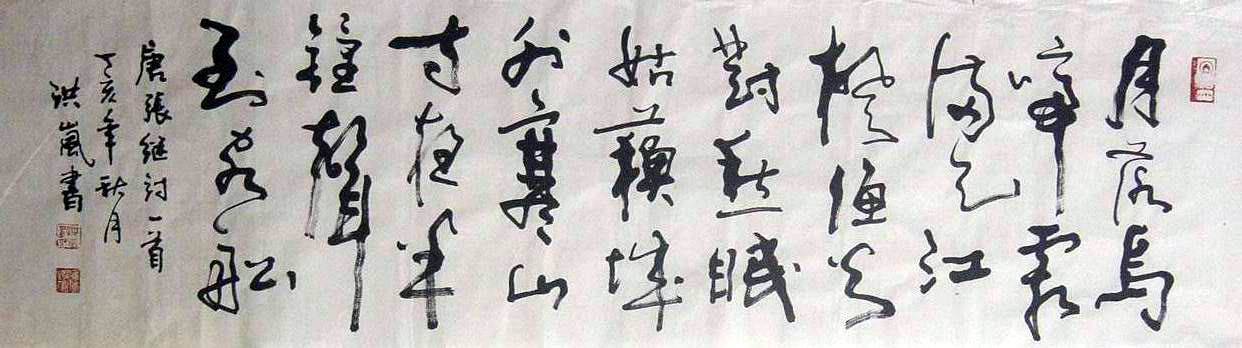 月落烏
啼霜
滿天江
楓漁火
對愁眠
姑蘇城
外寒山
寺夜半
鐘聲
到客船
唐張継詩一首
丁亥年秋月
洪嵐書